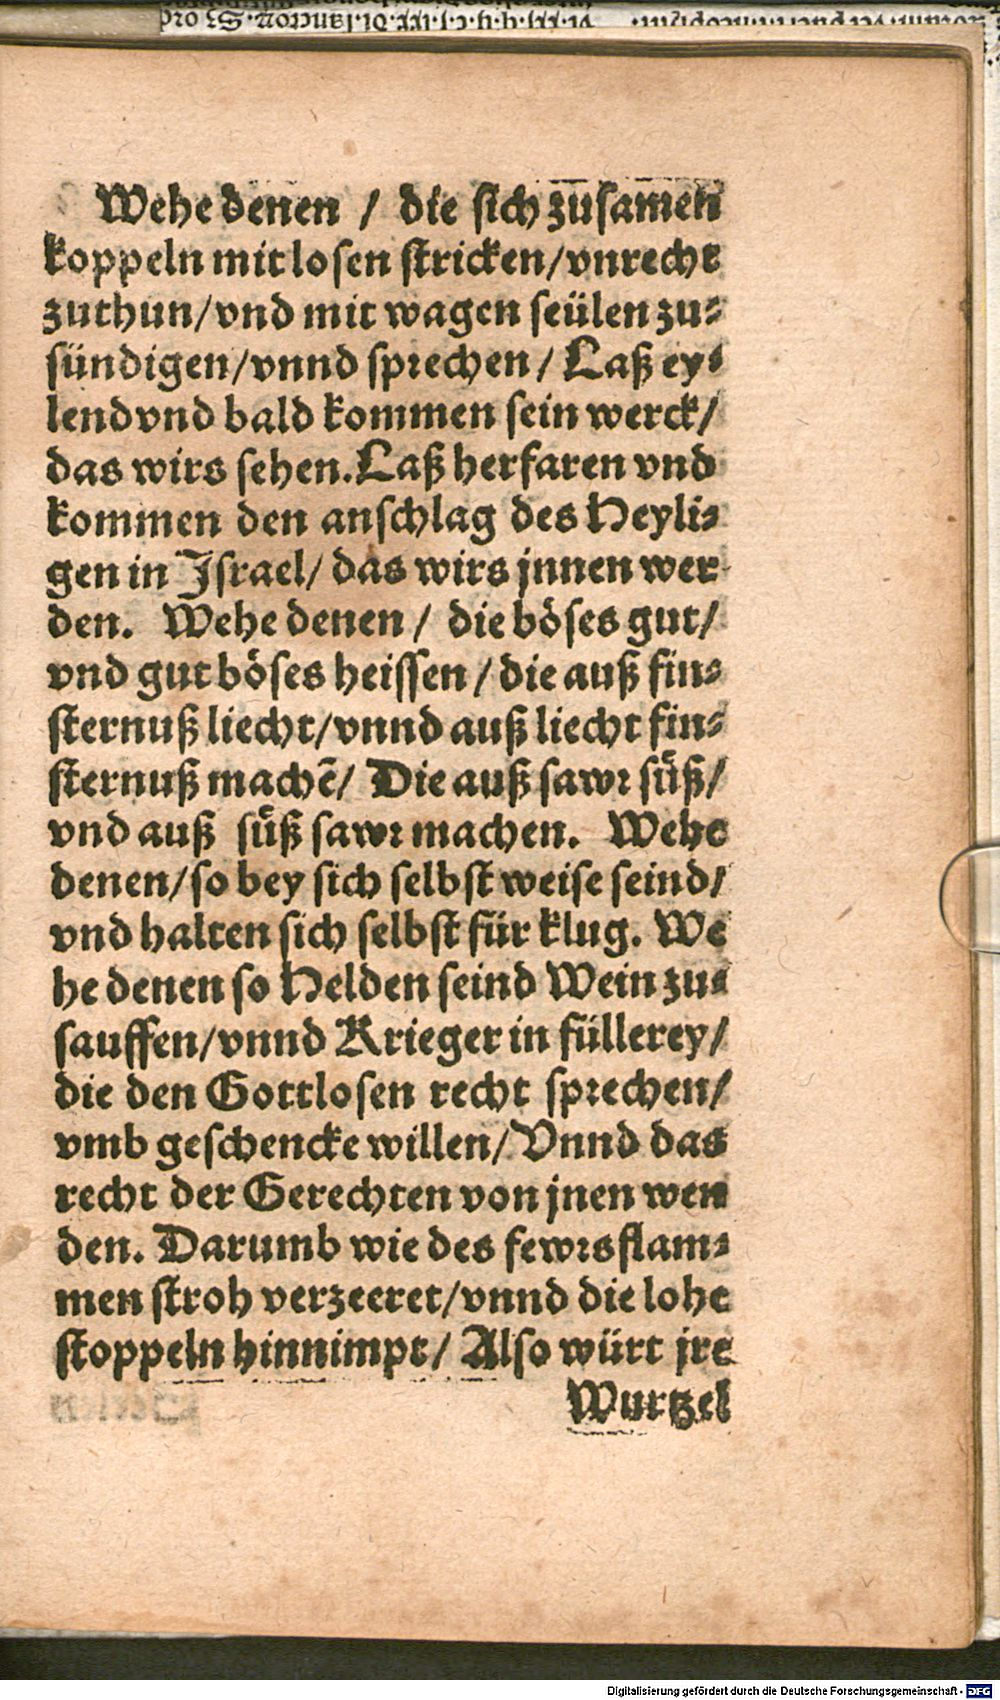 Wehe denen / die sich zusamen
koppeln mit losen stricken/vnrecht
zuthun/vnd mit wagen seülen zu⸗
sündigen/vnnd sprechen / Laß ey⸗
lend vnd bald kommen sein werck/
das wirs sehen. Laß herfaren vnd
kommen den anschlag des Heyli⸗
gen in Israel/ das wirs jnnen wer
den. Wehe denen / die böses gut/
vnd gut böses heissen / die auß fin⸗
sternuß liecht/vnnd auß liecht fin⸗
sternuß machẽ/ Die auß sawr süß/
vnd auß süß sawr machen. Wehe
denen/so bey sich selbst weise seind/
vnd halten sich selbst für klug. We
he denen so Helden seind Wein zu⸗
sauffen/vnnd Krieger in füllerey/
die den Gottlosen recht sprechen/
vmb geschencke willen/Vnnd das
recht der Gerechten von jnen wen
den. Darumb wie des fewrs flam⸗
men stroh verzeeret/vnnd die lohe
stoppeln hinnimpt/ Also würt jre
Wurtzel
Digitalisierung gefördert durch die Deutsche Forschungsgemeinschaft - DFG